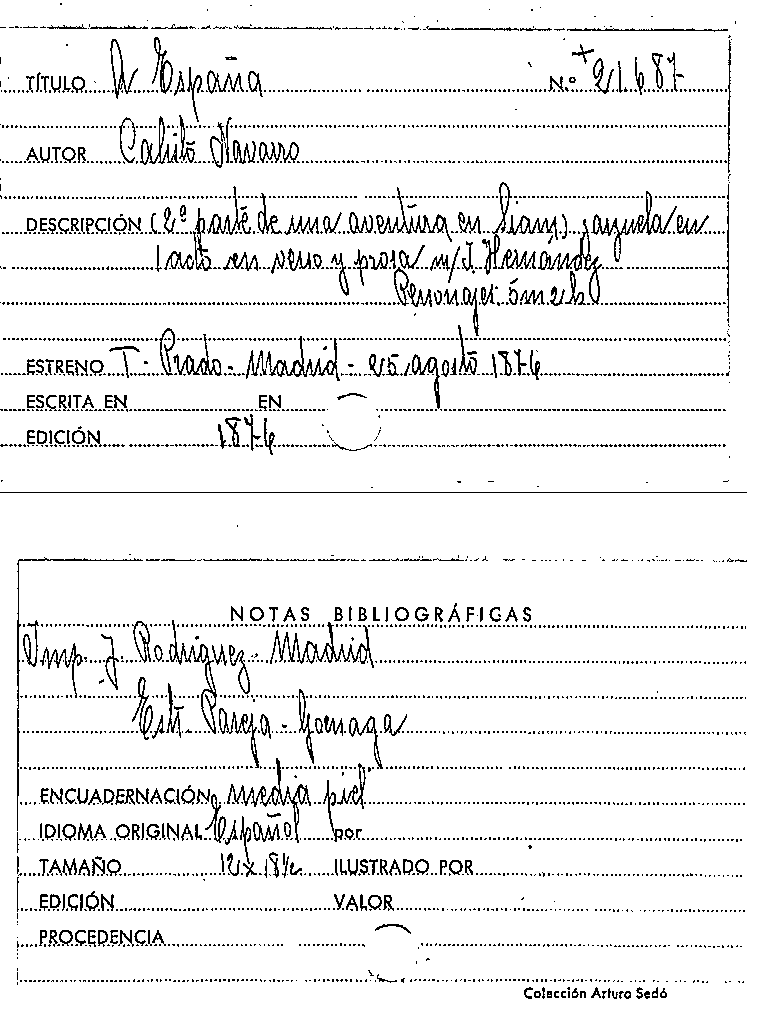 TÍTULO A España N.º + 21.687
AUTOR Calisto Navarro
DESCRIPCIÓN (2ª parte de una aventura en Siam) zarzuela en
1 acto en verso y prosa m/ J. Hernández
Personajes: 5m 2h
ESTRENO T. Prado - Madrid - 25 agosto 1876
ESCRITA EN EN
EDICIÓN 1876
NOTAS BIBLIOGRÁFICAS
Imp. J. Rodriguez - Madrid
Estr. Pareja - Gonzaga
ENCUADERNACIÓN media piel
IDIOMA ORIGINAL Español por
TAMAÑO 12 x 18½ ILUSTRADO POR
EDICIÓN VALOR
PROCEDENCIA
Colección Arturo Sedó